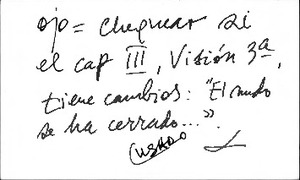 ojo = chequear si
el cap III, Visión 3ª,
tiene cambios: "El nudo
se ha cerrado..."
USADO